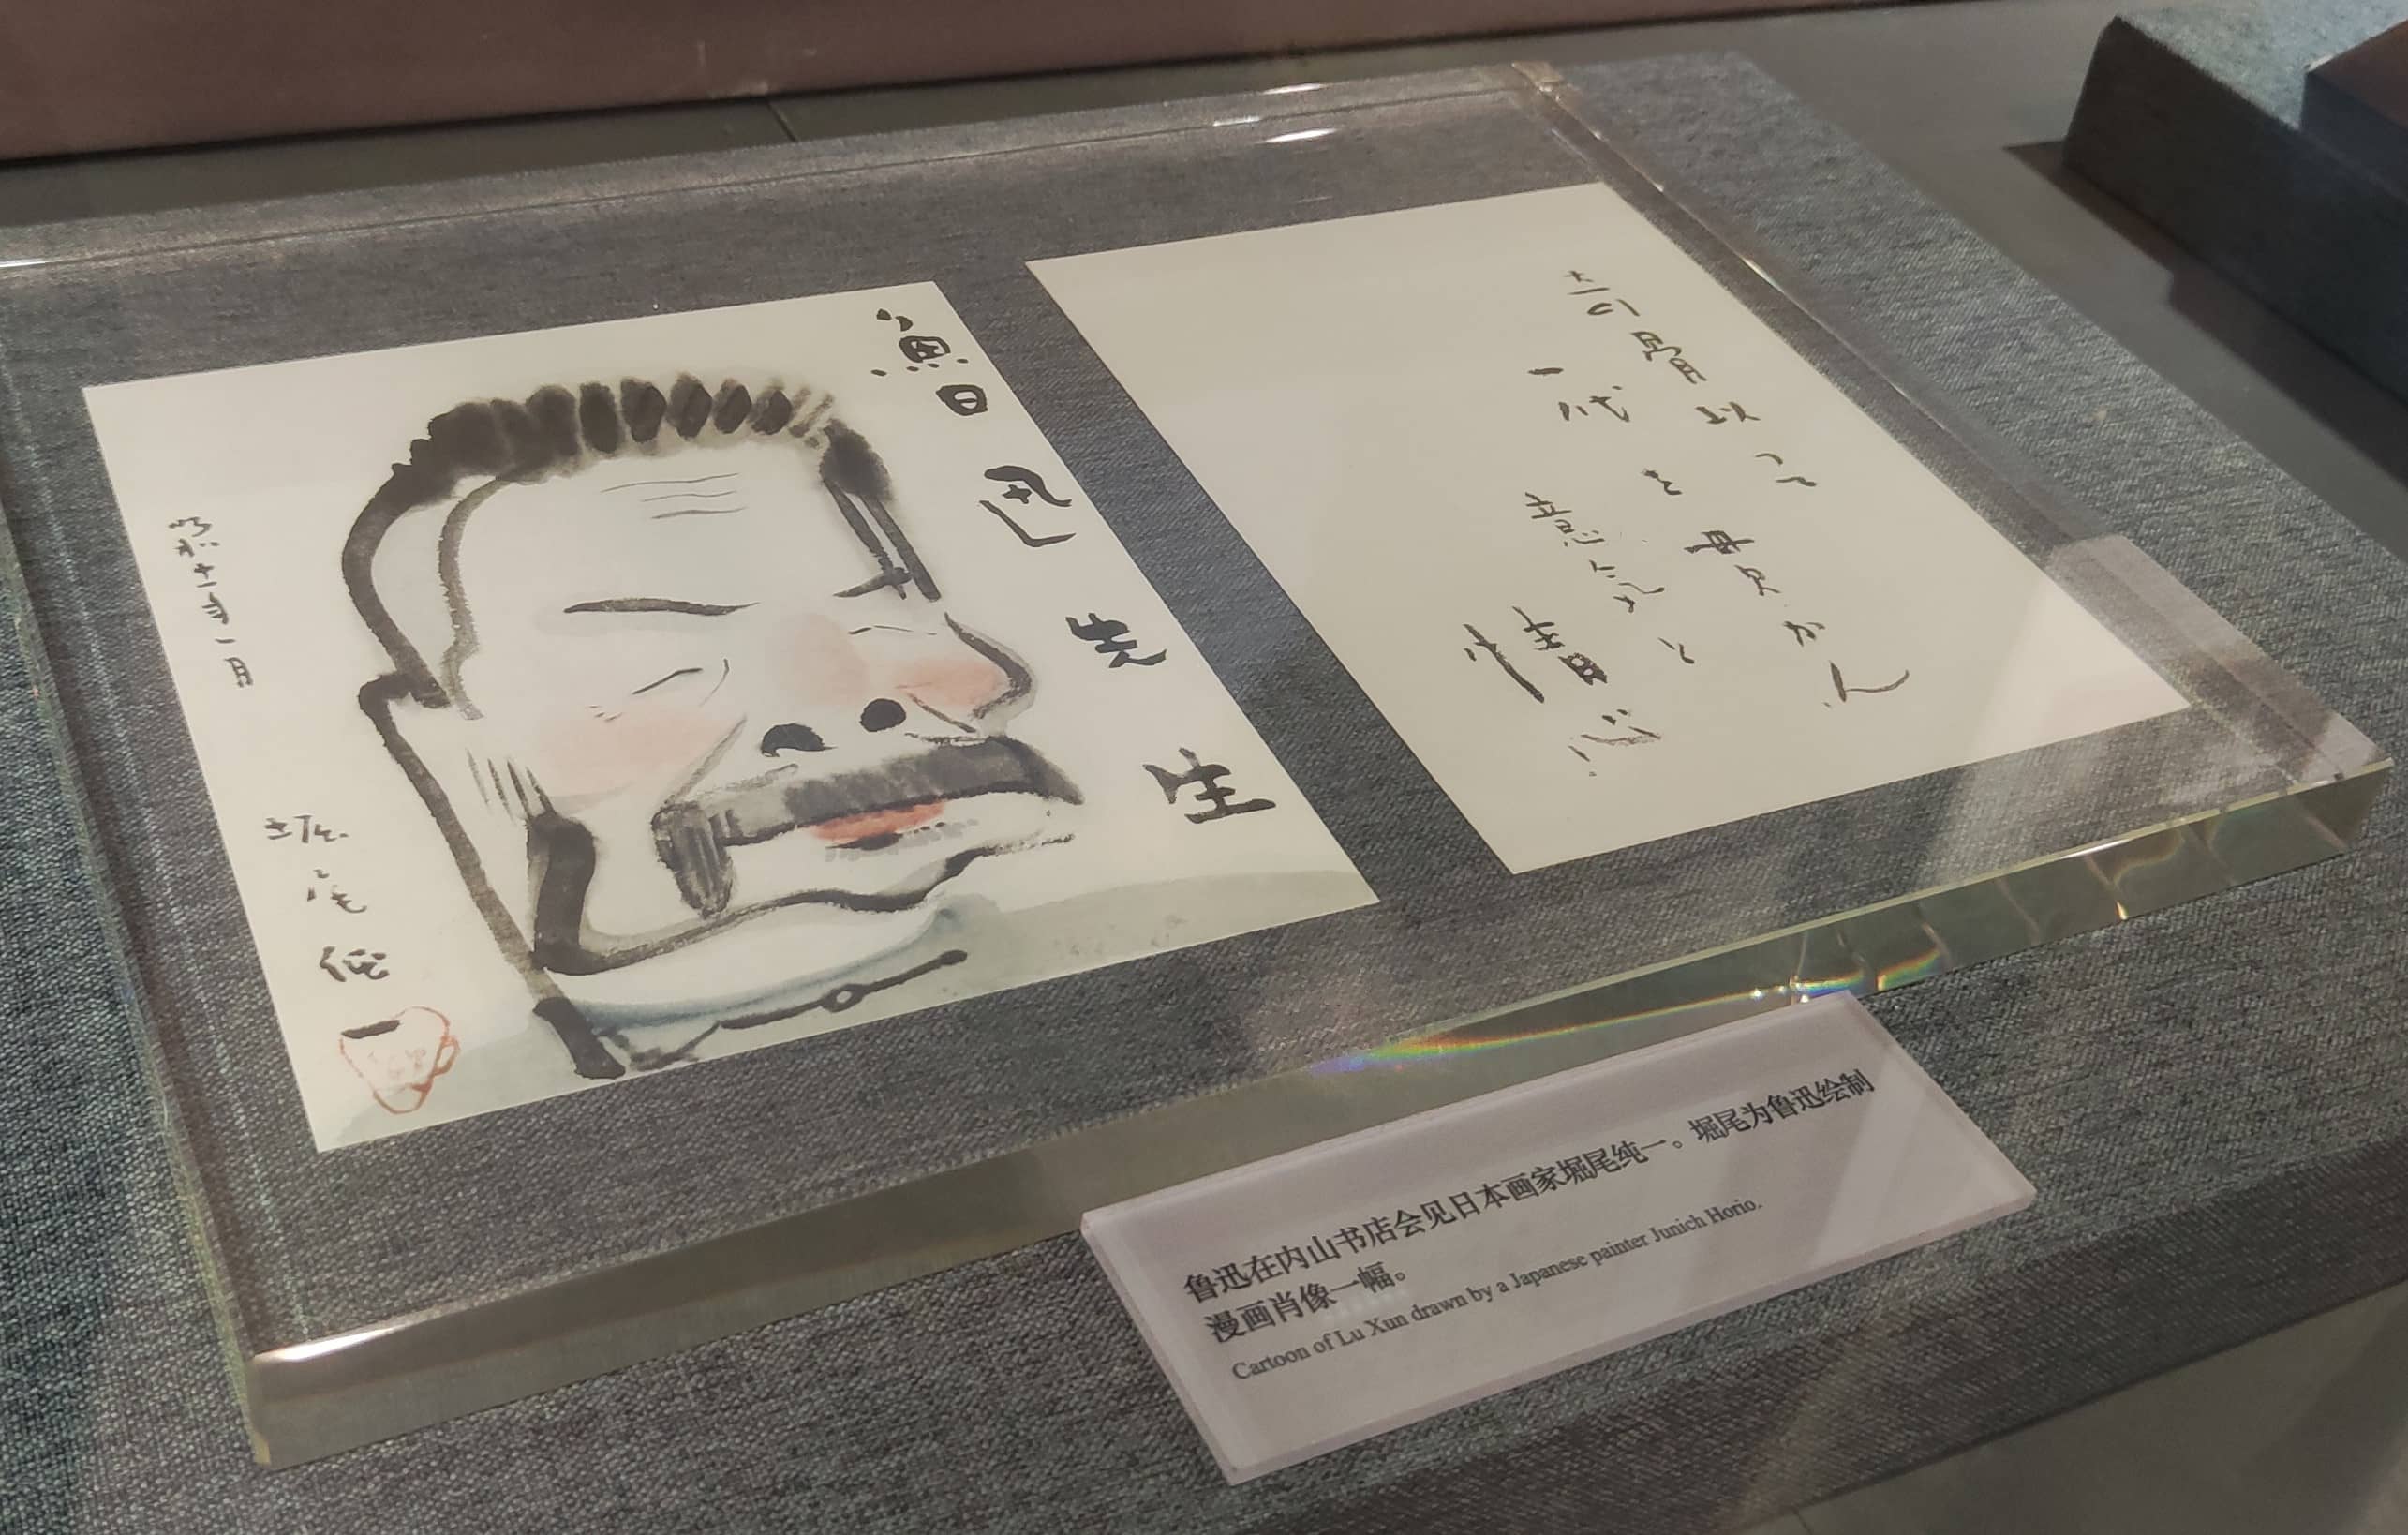 魯迅先生
昭和十一年一月
堀尾純一
奇骨以て
一代を貫かん
意気と
情心
鲁迅在内山书店会见日本画家堀尾纯一。堀尾为鲁迅绘制
漫画肖像一幅。
Cartoon of Lu Xun drawn by a Japanese painter Junich Horio.